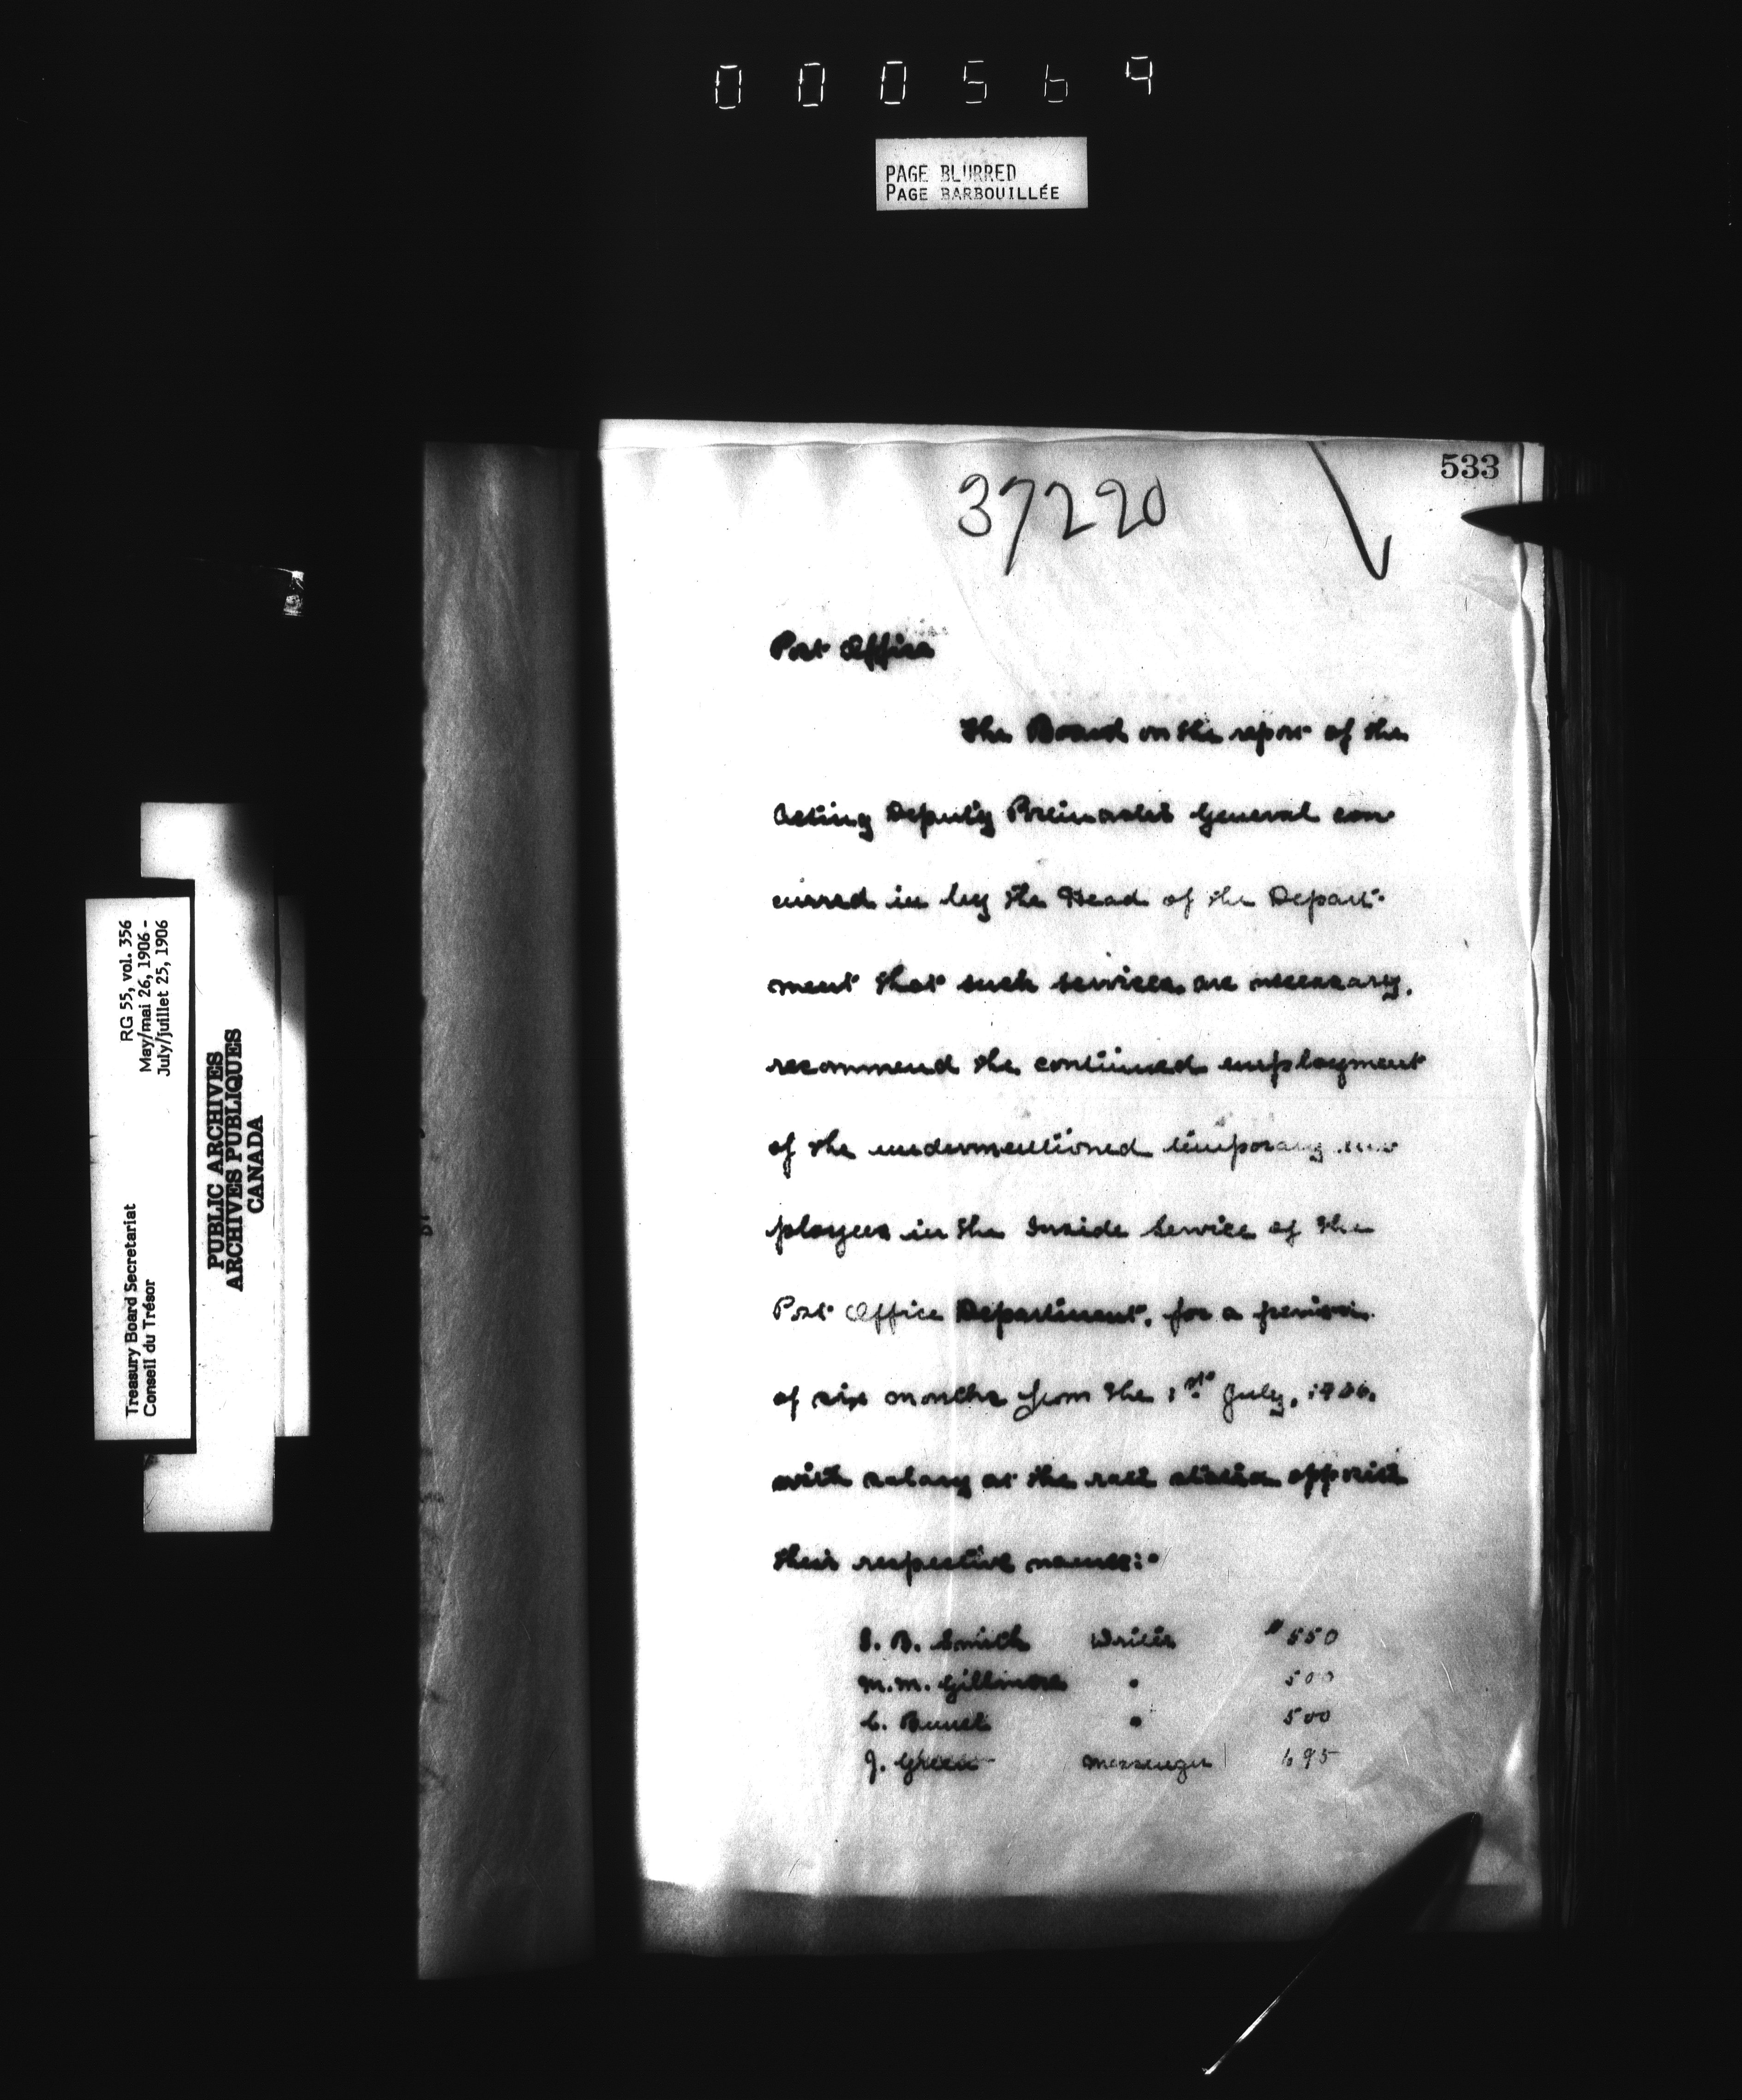 000569
PAGE BLURRED
PAGE BARBOUILLÉE
533
37220
Post Office
The Board on the report of the
Acting Deputy Postmaster General con-
curred in by the Head of the Depart-
ment that such services are necessary,
recommend the continued employment
of the undermentioned temporary em-
ployees in the Inside Service of the
Post Office Department, for a period
of six months from the 1st July, 1906,
with salary at the rate stated opposite
their respective names:-
S. B. Smith Writer $550
M.M. Gillmore " 500
C. " 500
J. Green Messenger 495
RG 55, vol. 356
May/mai 26, 1906 -
July/juillet 25, 1906
Treasury Board Secretariat
Conseil du Trésor
PUBLIC ARCHIVES
ARCHIVES PUBLIQUES
CANADA